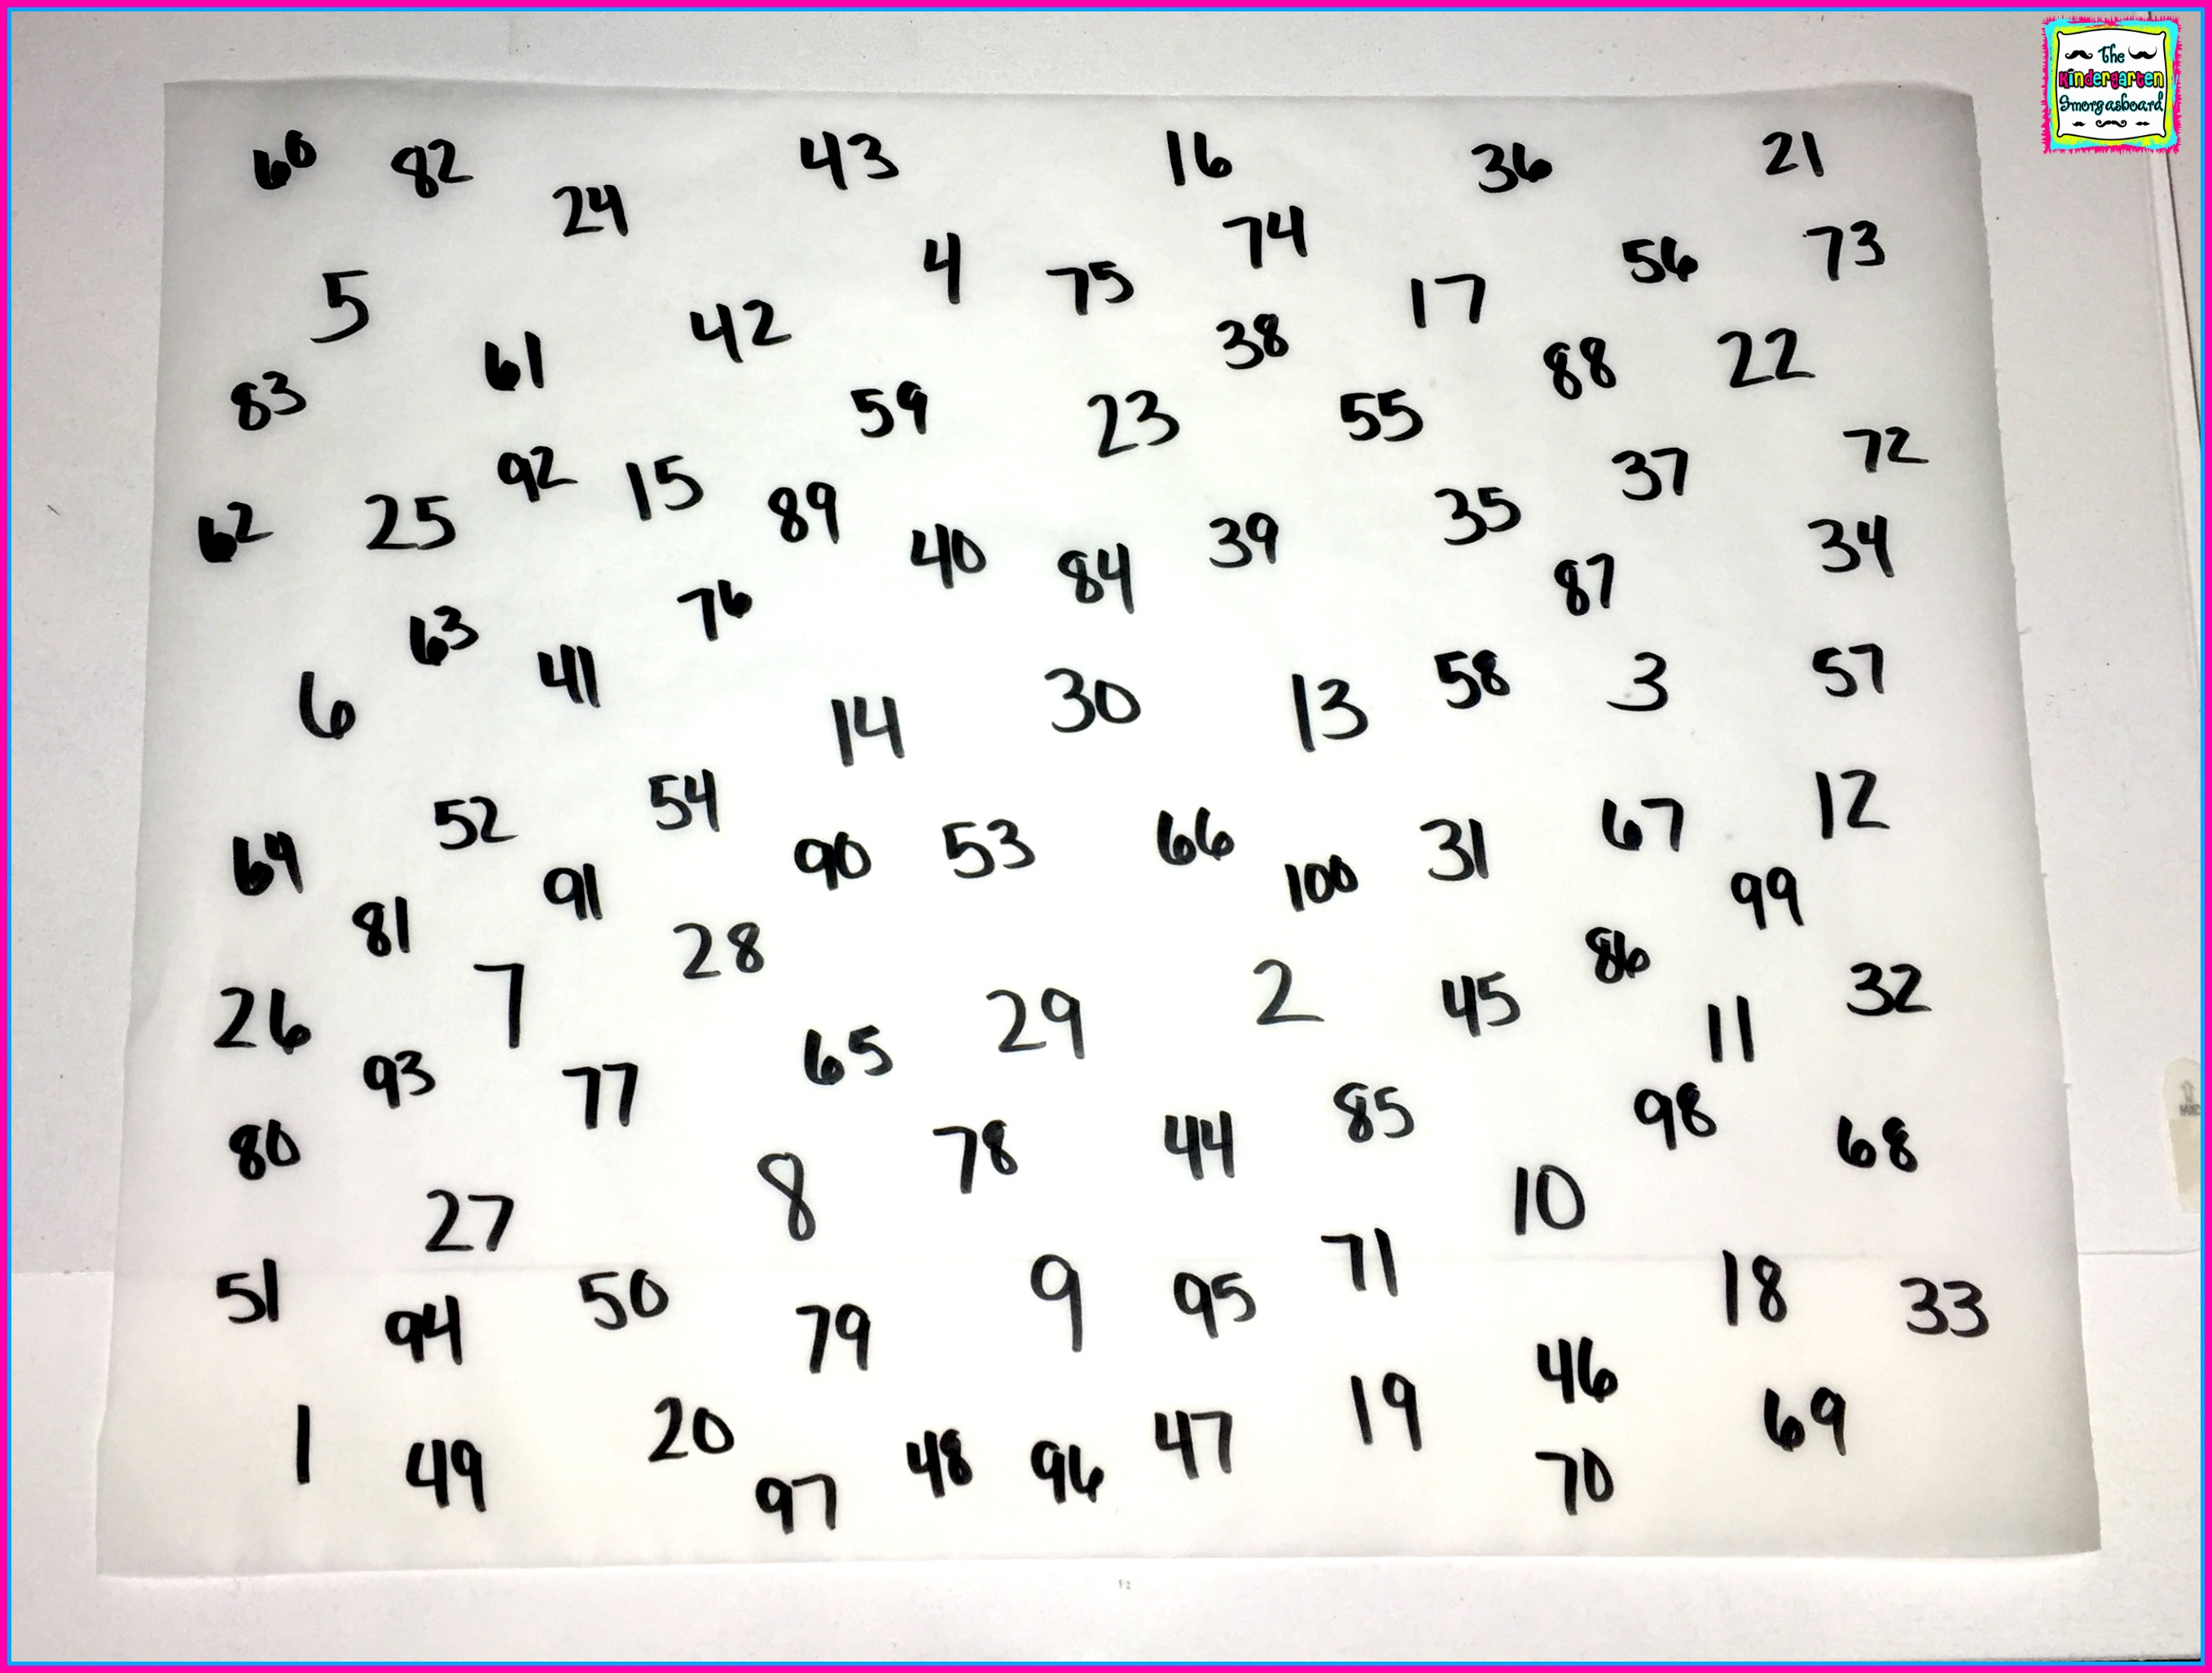 The
Kindergarten
Smorgasboard
60 82 43 16 36 21
24 4 75 74 56 73
5 61 42 38 17 88 22
83 59 23 55
92 15 89 37 72
62 25 40 84 39 35 34
63 76 87
6 41 14 30 13 58 3 57
52 54 12
64 90 53 66 100 31 67
81 91 99
7 28 2 86 32
26 65 29 45 11
93 77 85 98
80 8 78 44 68
27 10
51 50 9 95 71 18 33
94 79 46
1 20 19 69
49 97 48 96 47 70